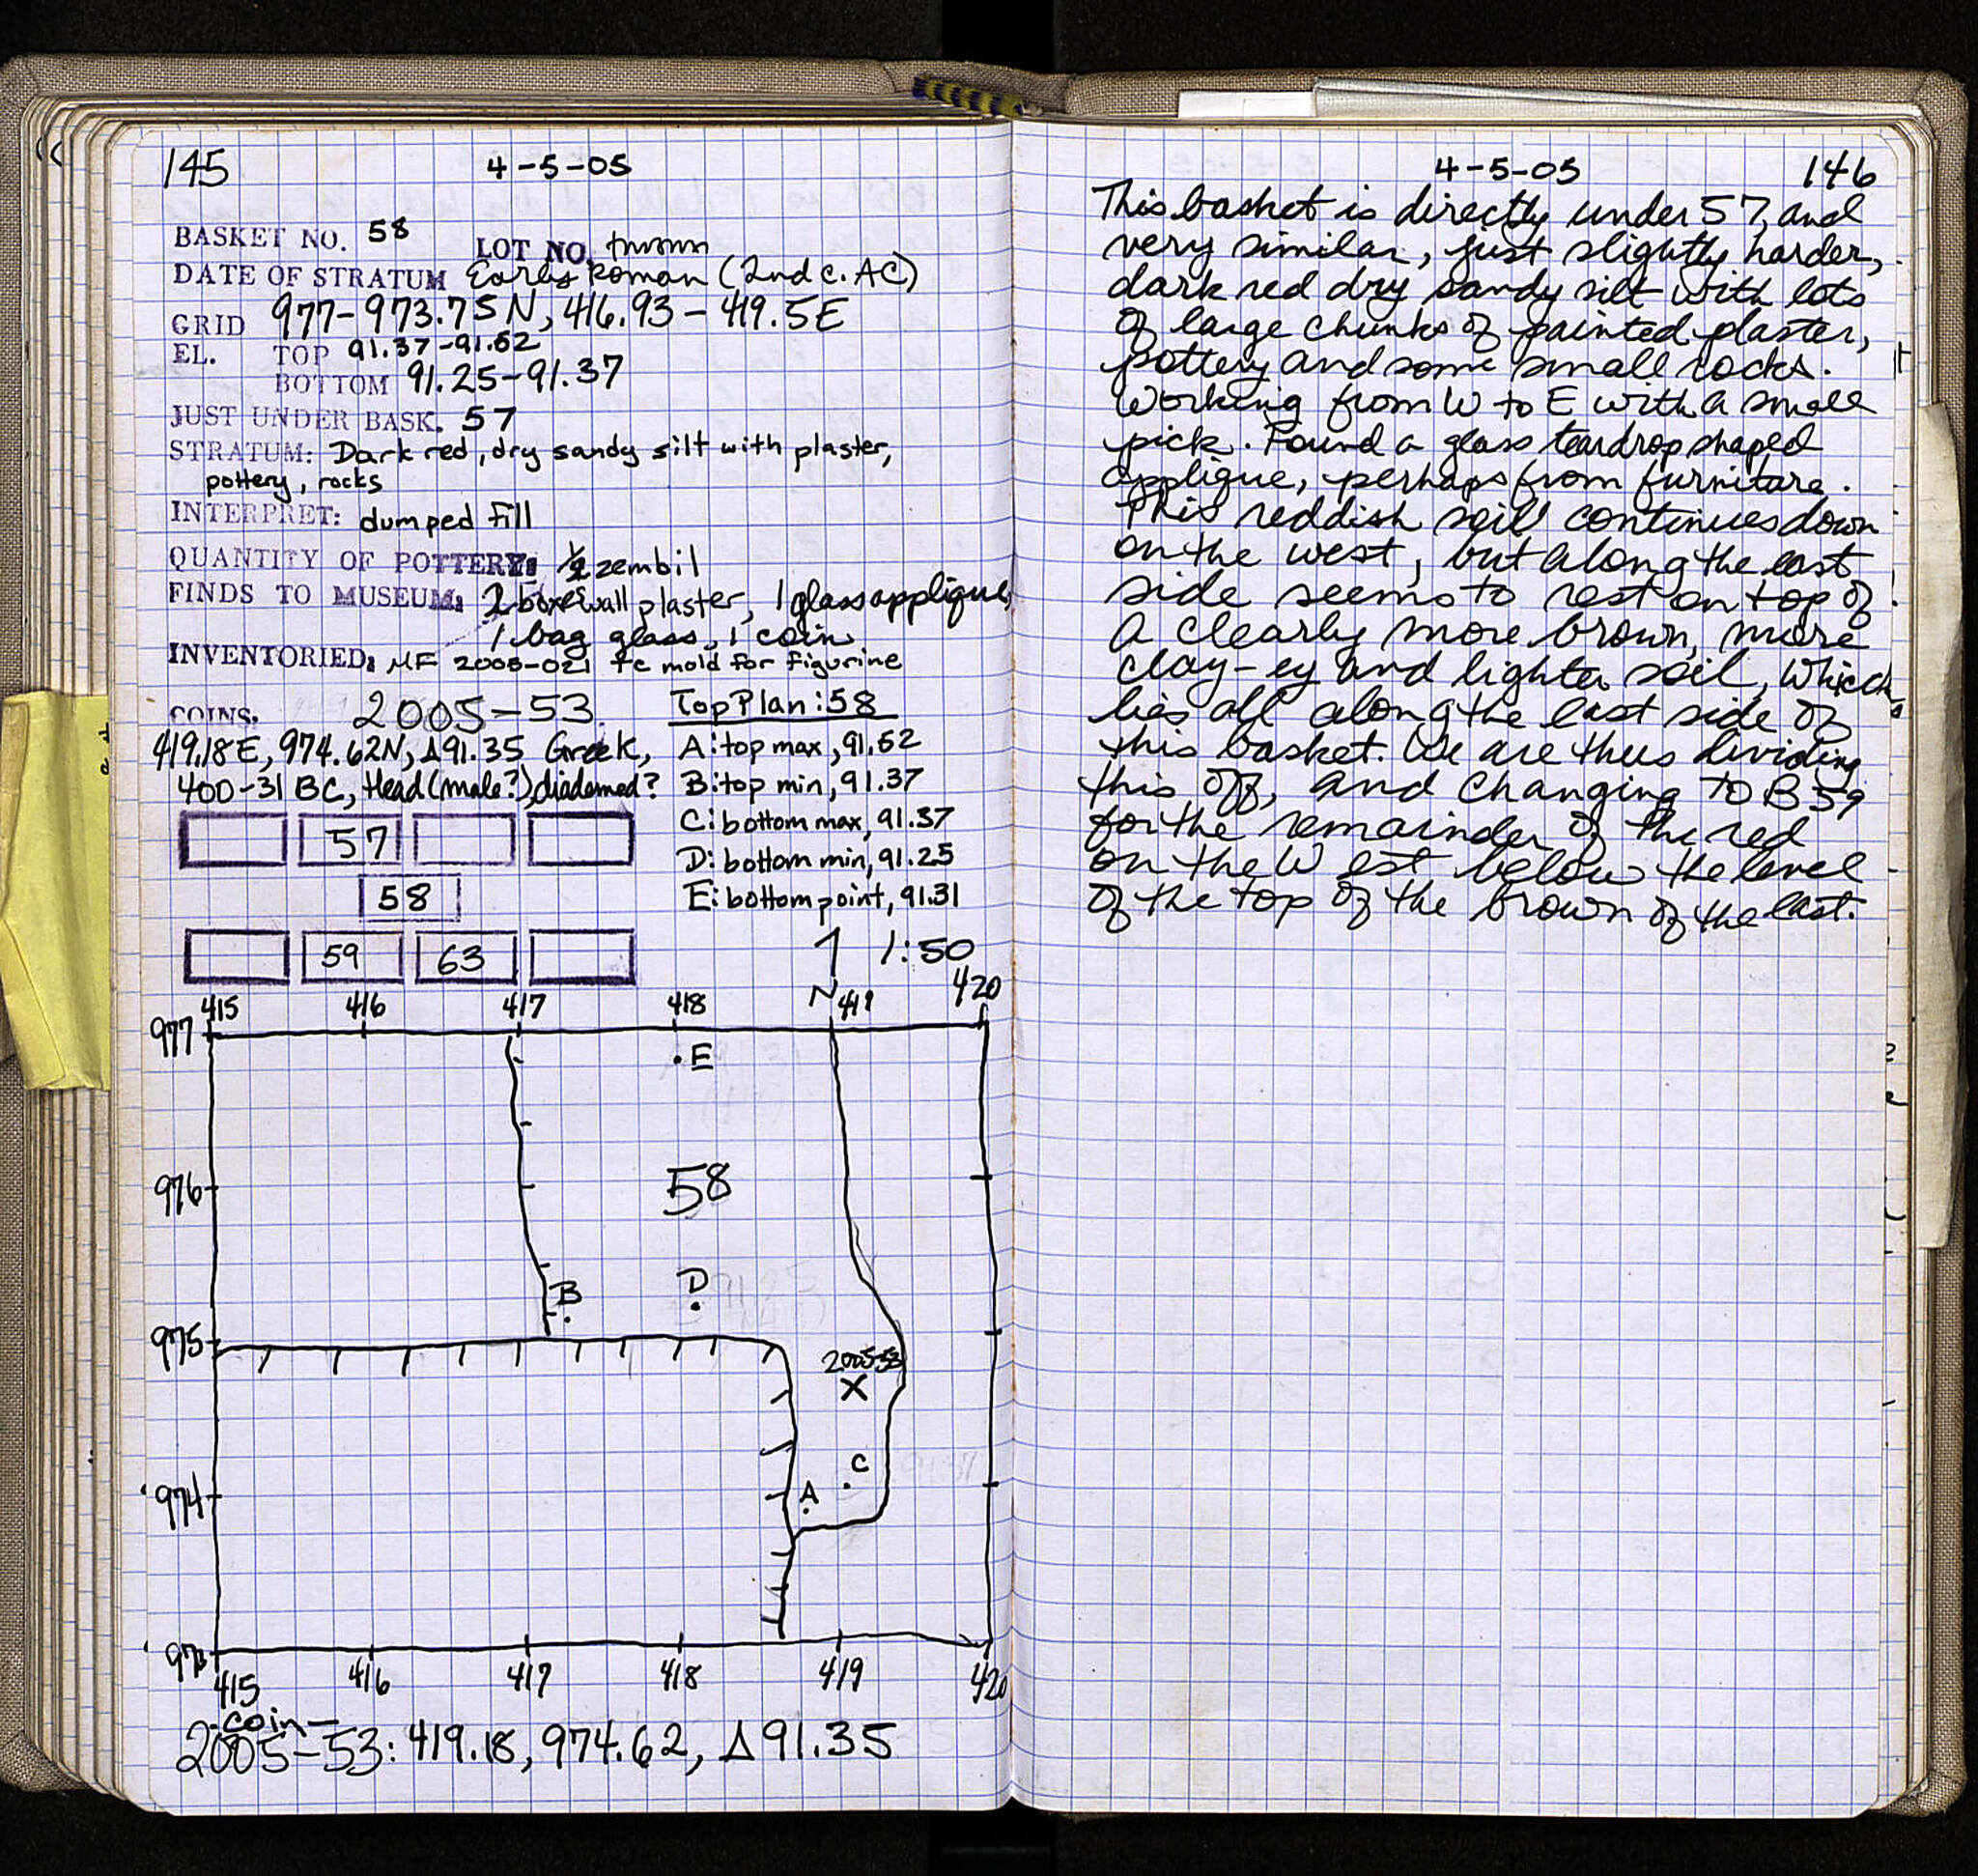 145
4-5-05
BASKET NO. 58 LOT NO.
DATE OF STRATUM Early Roman (2nd c. AC)
GRID 977-973.75N, 416.93-419.5E
EL. TOP 91.37-91.52
BOTTOM 91.25-91.37
JUST UNDER BASK. 57
STRATUM: Dark red, dry sandy silt with plaster,
pottery, rocks
INTERPRET: dumped fill
QUANTITY OF POTTERY: ½ zembil
FINDS TO MUSEUM: 2 boxes wall plaster, 1 glass applique,
1 bag glass, 1 coin
INVENTORIED: MF 2005-021 tc mold for figurine
COINS. 2005-53
419.18E, 974.62N, Δ91.35 Greek,
400-31 BC, Head (male?), diademed?
Top Plan: 58
A: top max, 91.52
B: top min, 91.37
C: bottom max, 91.37
D: bottom min, 91.25
E: bottom point, 91.31
57
58
59 63
N 1:50
415 416 417 418 419 420
977
976
975
974
973
E
58
B
D
2005-53
X
C
A
415 416 417 418 419 420
-coin-
2005-53: 419.18, 974.62, Δ91.35
4-5-05
146
This basket is directly under 57, and
very similar, just slightly harder,
dark red dry sandy silt with lots
of large chunks of painted plaster,
pottery and some small rocks.
Working from W to E with a small
pick. Found a glass teardrop shaped
applique, perhaps from furniture.
This reddish soil continues down
on the west, but along the east
side seems to rest on top of
a clearly more brown, more
clay-ey and lighter soil, which
lies all along the east side of
this basket. We are thus dividing
this off, and changing to B59
for the remainder of the red
on the West below the level
of the top of the brown of the east.